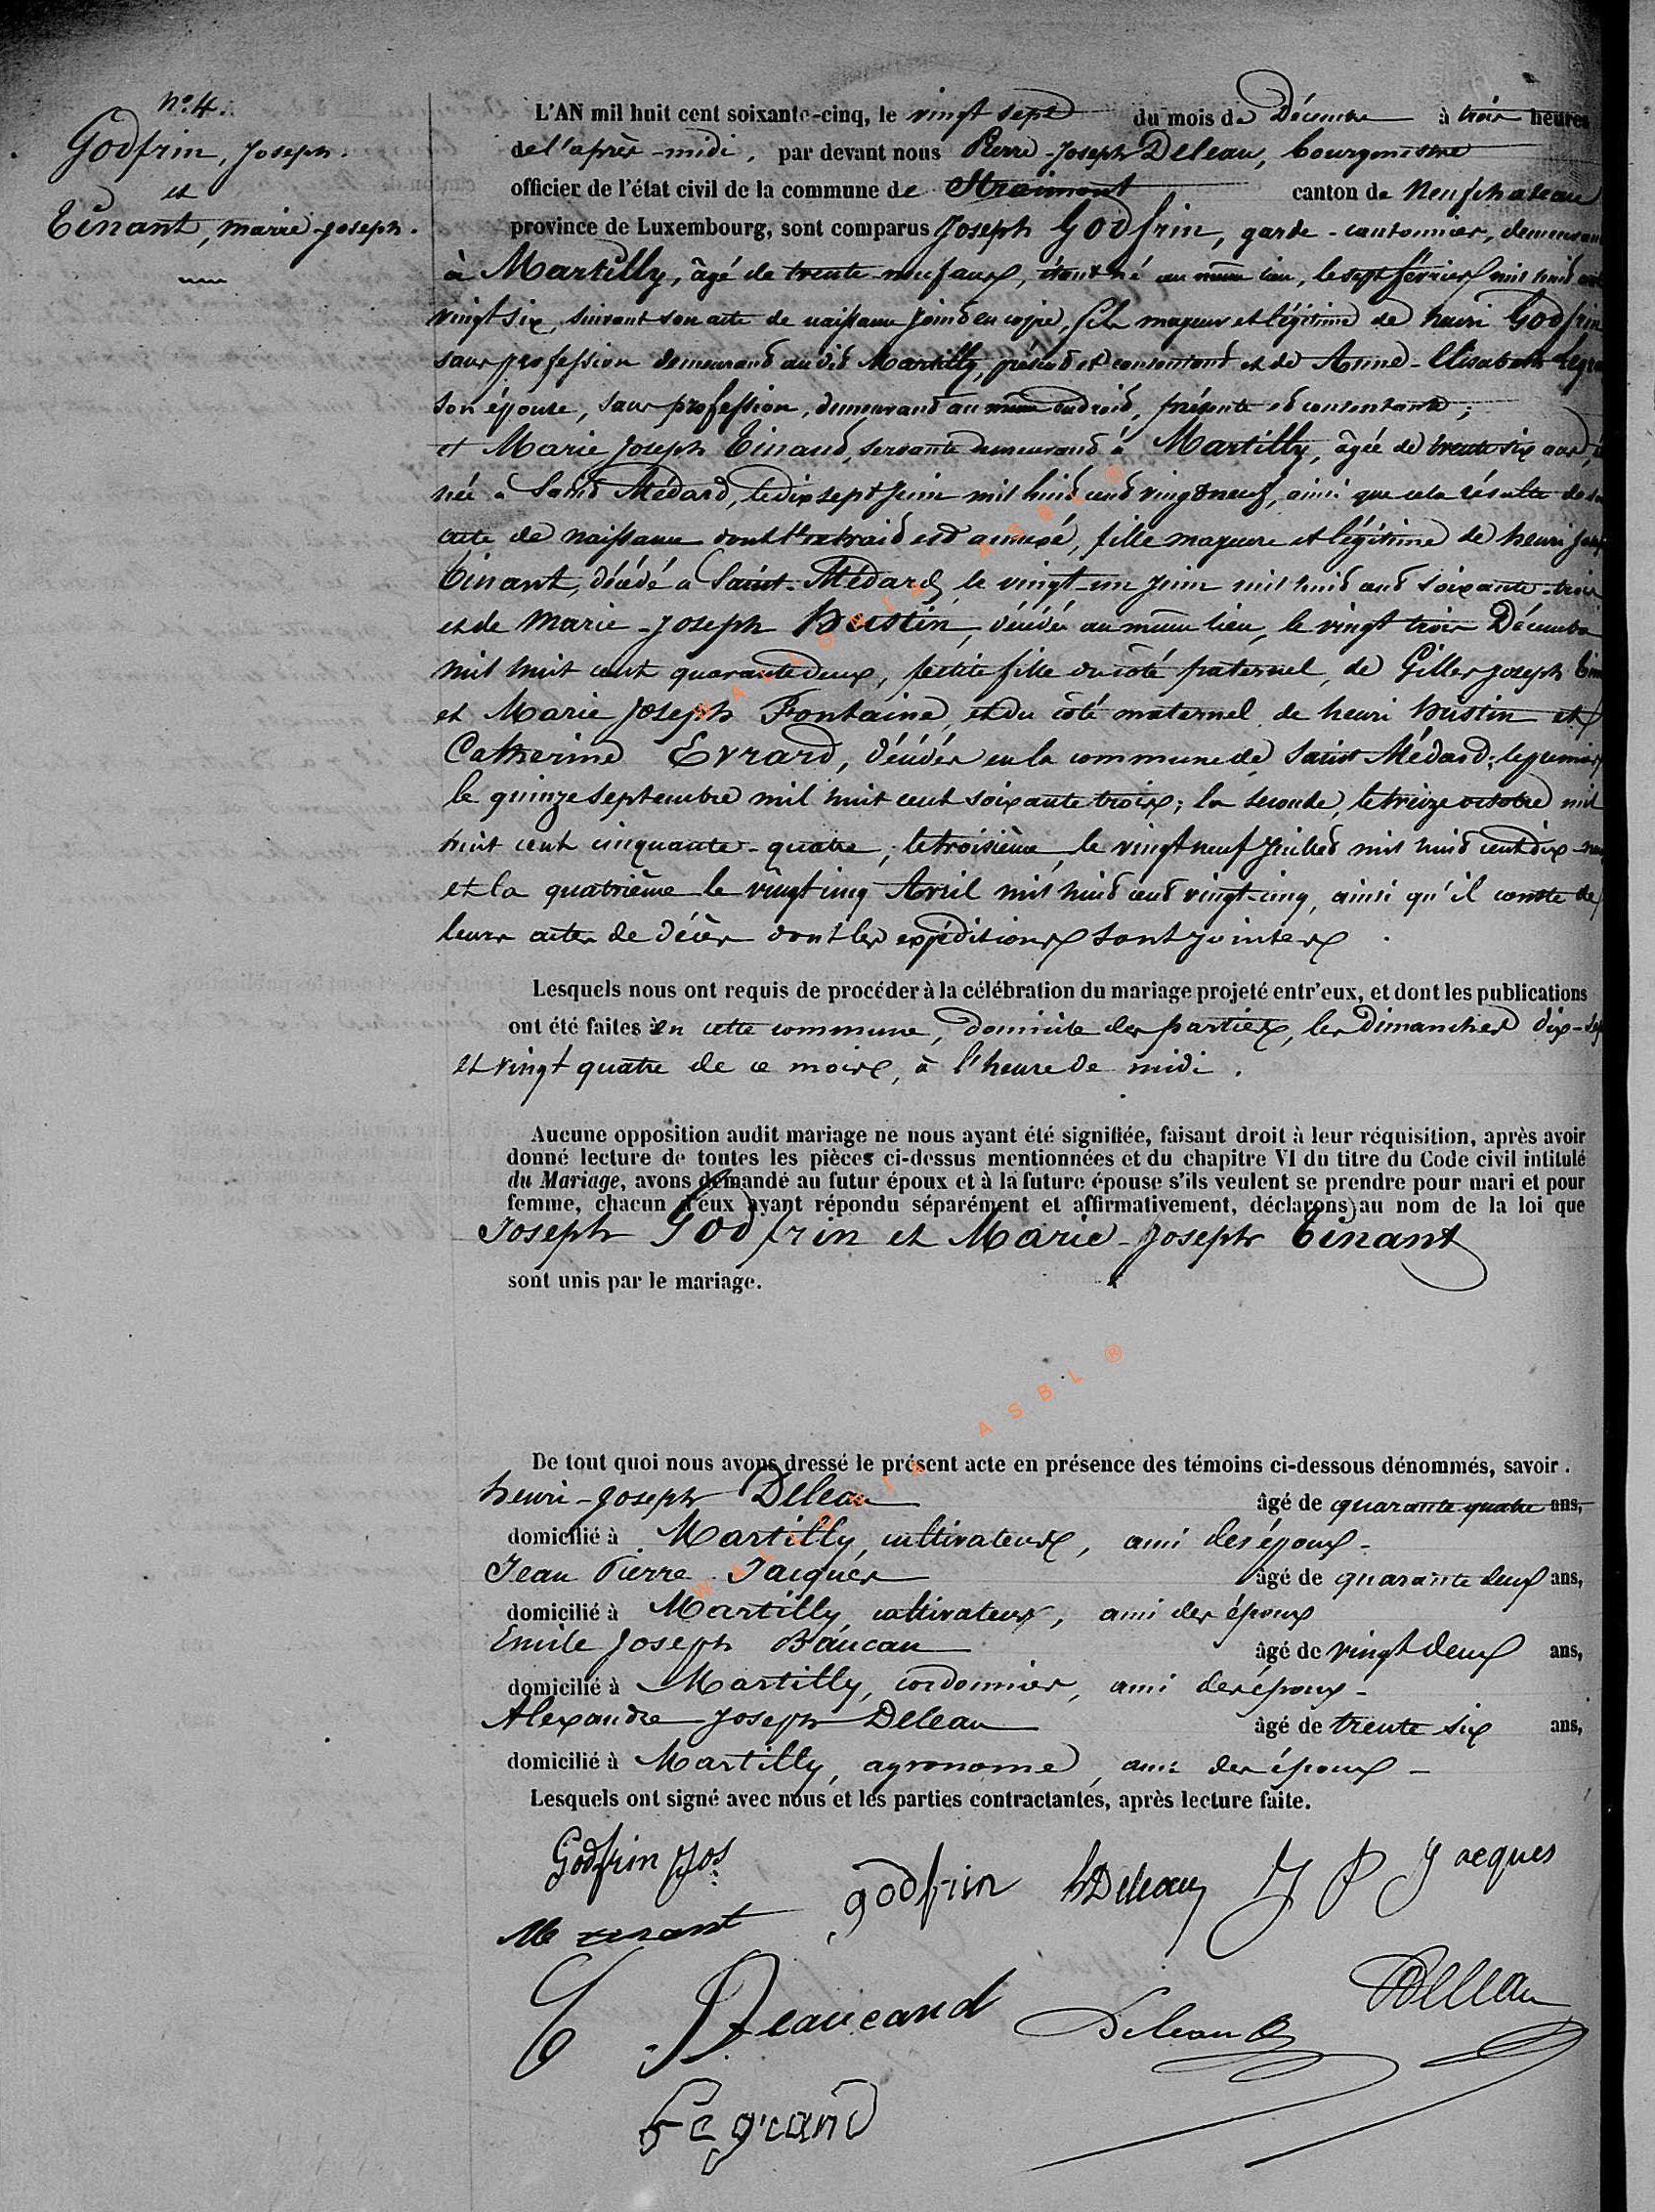 n° 4.
Godfrin, Joseph.
et
Tinant, marie-joseph.
L'AN mil huit cent soixante-cinq, le vingt sept du mois de Décembre à trois heures
de l'après-midi, par devant nous Pierre-Joseph Deleau, bourgmestre
officier de l'état civil de la commune de Straimont canton de Neufchateau
province de Luxembourg, sont comparus Joseph Godfrin, garde-cantonnier, demeurant
à Martilly, âgé de trente neuf ans, étant né au même lieu, le sept février mil huit cent
vingt six, suivant son acte de naissance joint en copie, fils majeur et légitime de henri Godfrin
sans profession demeurant au dit Martilly, présent et consentant et de Anne-Elisabeth Legrand
son épouse, sans profession, demeurant au même endroit, présente et consentante;
et Marie Joseph Tinant, servante demeurant à Martilly, âgée de trente six ans,
née à Saint Médard, le dix sept Juin mil huit cent vingt neuf, ainsi que cela résulte de son
acte de naissance dont l'extrait est annexé, fille majeure et légitime de henri Joseph
Tinant, décédé à Saint-Médard, le vingt-un Juin mil huit cent soixante-trois
et de Marie-Joseph Hustin, décédée au même lieu, le vingt trois Décembre
mil huit cent quarante deux, petite fille du côté paternel, de Gilles Joseph Tinant
et Marie Joseph Fontaine, et du côté maternel de henri hustin et
Catherine Evrard, décédés en la commune de Saint Médard; le premier
le quinze septembre mil huit cent soixante trois; la seconde, le treize octobre mil
huit cent cinquante-quatre; le troisième, le vingt neuf Juillet mil huit cent dix-
et la quatrième le vingt cinq Avril mil huit cent vingt-cinq, ainsi qu'il conste de
leurs actes de décès dont les expéditions sont jointes.
Lesquels nous ont requis de procéder à la célébration du mariage projeté entr'eux, et dont les publications
ont été faites en cette commune, domicile des parties, les Dimanches dix-sept
et vingt quatre de ce mois, à l'heure de midi.
Aucune opposition audit mariage ne nous ayant été signifiée, faisant droit à leur réquisition, après avoir
donné lecture de toutes les pièces ci-dessus mentionnées et du chapitre VI du titre du Code civil intitulé
du Mariage, avons demandé au futur époux et à la future épouse s'ils veulent se prendre pour mari et pour
femme, chacun d'eux ayant répondu séparément et affirmativement, déclarons au nom de la loi que
Joseph Godfrin et Marie-Joseph Tinant
sont unis par le mariage.
De tout quoi nous avons dressé le présent acte en présence des témoins ci-dessous dénommés, savoir.
henri-Joseph Deleau âgé de quarante quatre ans,
domicilié à Martilly, cultivateur, ami des époux-
Jean Pierre Jacques âgé de quarante deux ans,
domicilié à Martilly, cultivateur, ami des époux
Emile Joseph Baucau âgé de vingt deux ans,
domicilié à Martilly, cordonnier, ami des époux-
Alexandre-Joseph Deleau âgé de trente six ans,
domicilié à Martilly, agronome, ami des époux-
Lesquels ont signé avec nous et les parties contractantes, après lecture faite.
Godfrin Jos
godfrin hDeleau J P Jacques
M tinant
E Beaucand Deleau Deleau
Legrand
WALLONIA ASBL ®
WALLONIA ASBL ®